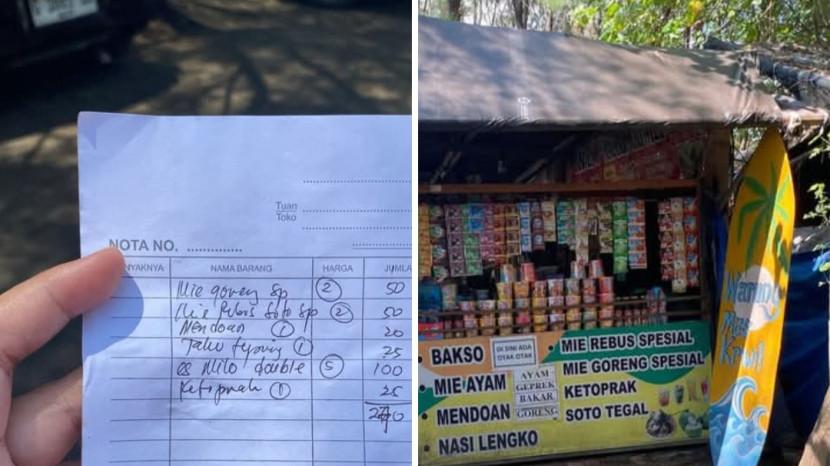 Tuan
Toko
NOTA NO. ..............
YAKNYA NAMA BARANG HARGA JUMLA
Mie goreng Sp (2) 50
Mie Rebus Soto Sp (2) 50
Mendoan (1) 20
Tahu (1) 25
es Milo double (5) 100
Ketoprak (1) 25
BAKSO
DI SINI ADA
OTAK OTAK
MIE AYAM
AYAM
GEPREK
BAKAR
GORENG
MENDOAN
NASI LENGKO
MIE REBUS SPESIAL
MIE GORENG SPESIAL
KETOPRAK
SOTO TEGAL
Warung